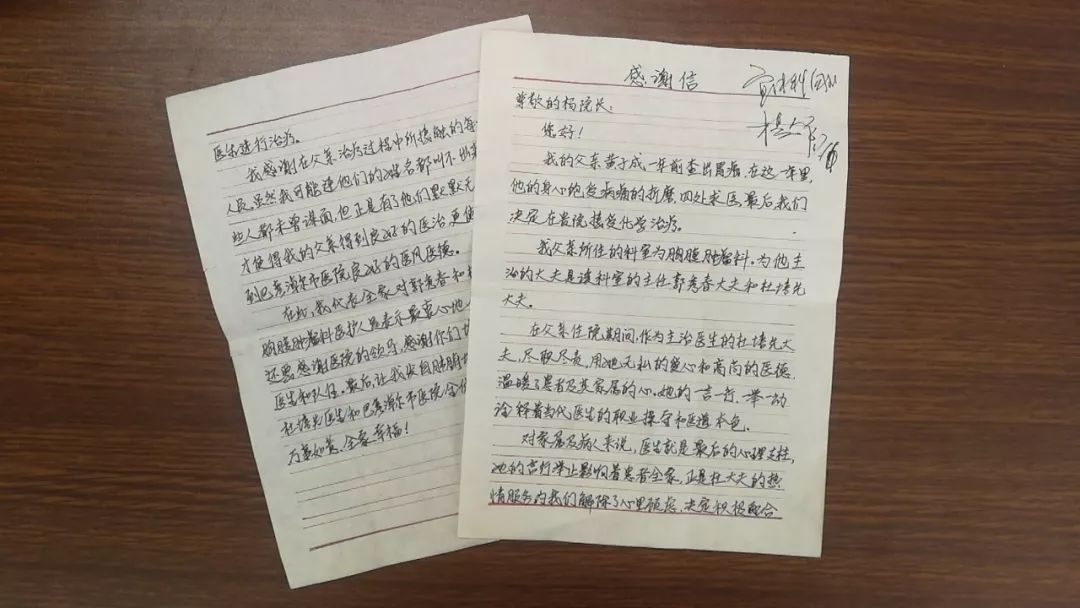 感谢信
尊敬的杨院长:
您好!
我的父亲黄子成一年前查出胃病,在这一年里,
他的身心饱受病痛的折磨,四处求医,最后我们
决定在贵院接受化学治疗。
我父亲所住的科室为胸腹肿瘤科。为他主
治的大夫是该科室的主任郭秀春大夫和杜培先
大夫。
在父亲住院期间,作为主治医生的杜培先大
夫,尽职尽责,用她无私的爱心和高尚的医德,
温暖了患者及其家属的心。她的一言一行、一举一动
诠释着当代医生的职业操守和医道本色。
对家属及病人来说,医生就是最后的心理支柱,
她的言行举止影响着患者全家,正是杜大夫的热
情服务为我们解除了心里顾虑,决定积极配合
医生进行治疗。
我感谢在父亲治疗过程中所接触的每
人员,虽然我可能连他们的姓名都叫不出来
些人都未曾谋面,但正是有了他们默默无
才使得我的父亲得到良好的医治,更使
到巴彦淖尔市医院良好的医风医德。
在此,我代表全家对郭秀春和杜
胸腹肿瘤科医护人员表示最衷心地
还要感谢医院的领导,感谢你们培
医生和队伍。最后,让我发自肺腑地
杜培先医生和巴彦淖尔市医院全体
万事如意、全家幸福!